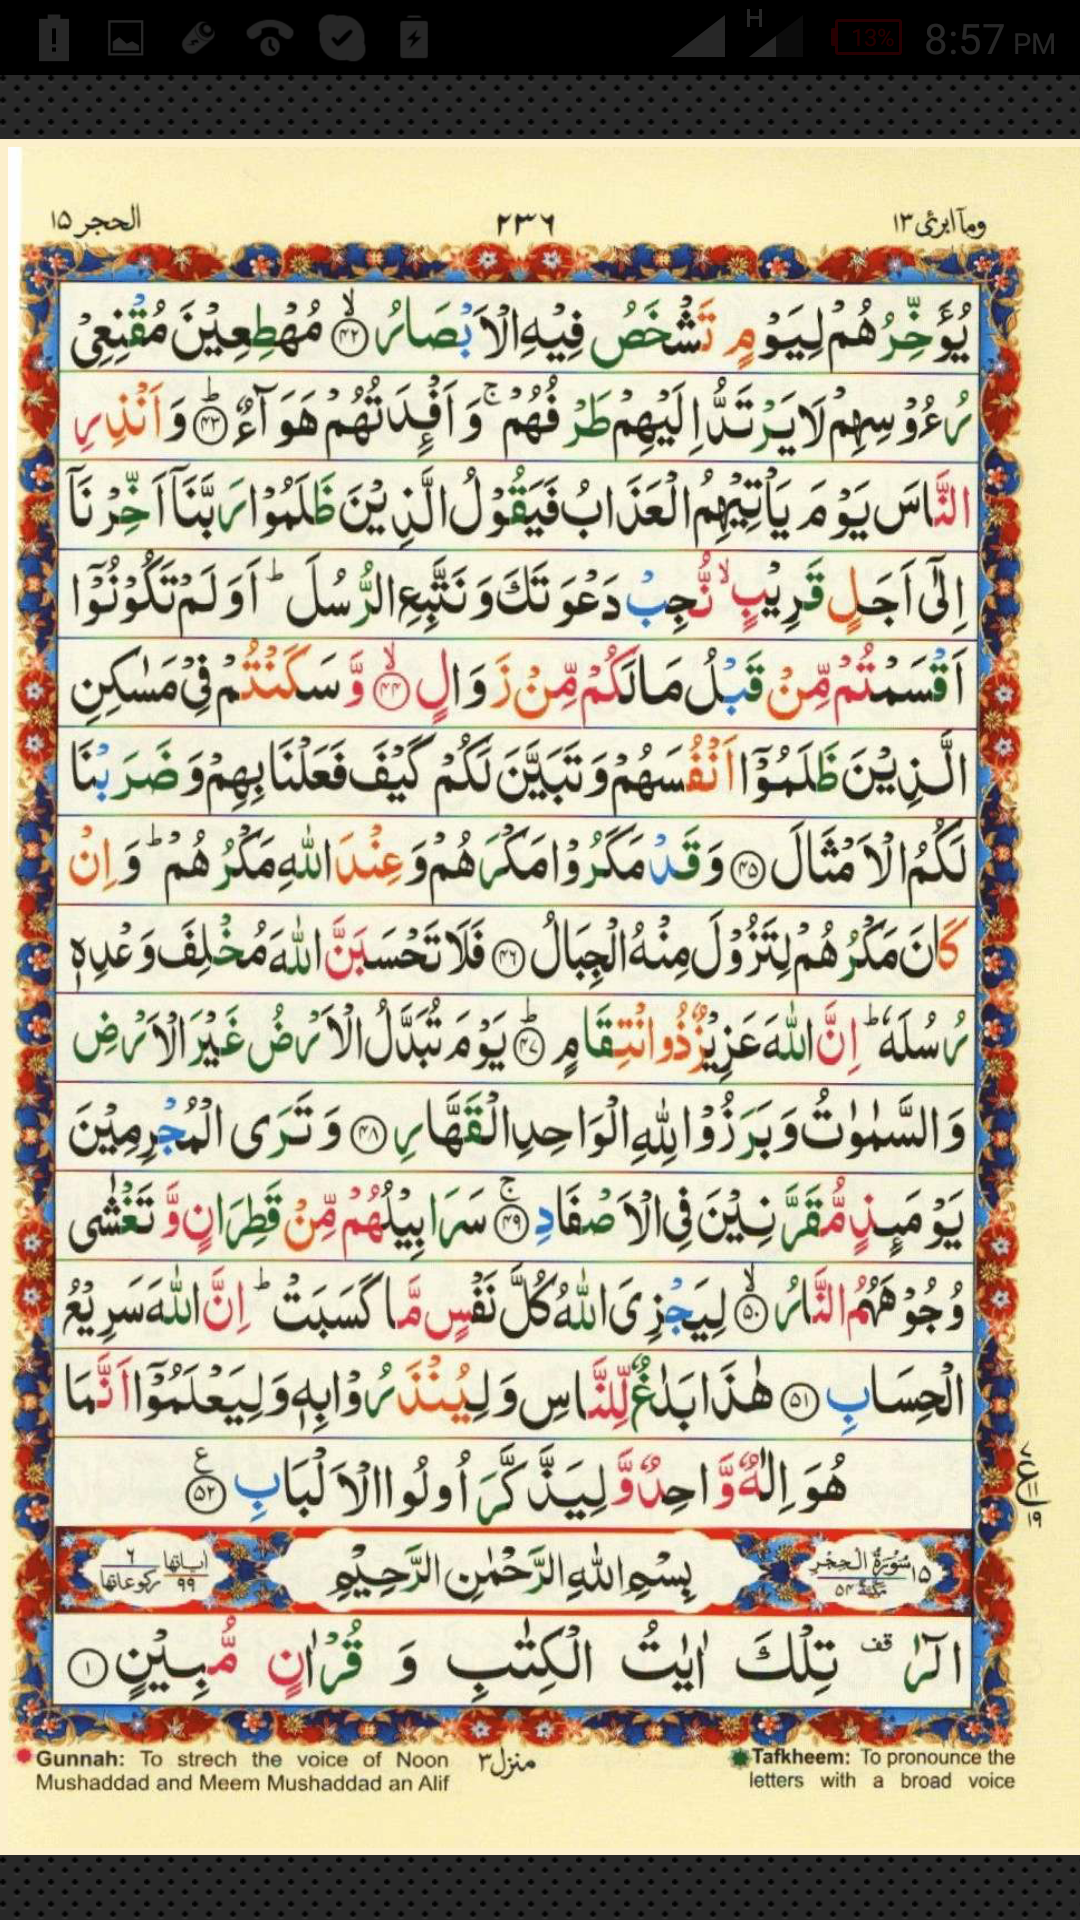 H 13% 8:57 PM
وما ابرئ ١٣ ٢٣٦ الحجر ١٥
يُؤَخِّرُهُمْ لِيَوْمٍ تَشْخَصُ فِيْهِ الْاَبْصَارُ ۙ﴿۴۲﴾ مُهْطِعِيْنَ مُقْنِعِيْ
رُءُوْسِهِمْ لَا يَرْتَدُّ اِلَيْهِمْ طَرْفُهُمْ ۚ وَ اَفْـِٕدَتُهُمْ هَوَآءٌ ؕ﴿۴۳﴾ وَ اَنْذِرِ
النَّاسَ يَوْمَ يَاْتِيْهِمُ الْعَذَابُ فَيَقُوْلُ الَّذِيْنَ ظَلَمُوْا رَبَّنَاۤ اَخِّرْنَاۤ
اِلٰۤى اَجَلٍ قَرِيْبٍ ۙ نُّجِبْ دَعْوَتَكَ وَ نَتَّبِعِ الرُّسُلَ ؕ اَوَ لَمْ تَكُوْنُوْۤا
اَقْسَمْتُمْ مِّنْ قَبْلُ مَا لَكُمْ مِّنْ زَوَالٍ ۙ﴿۴۴﴾ وَّ سَكَنْتُمْ فِيْ مَسٰكِنِ
الَّذِيْنَ ظَلَمُوْۤا اَنْفُسَهُمْ وَ تَبَيَّنَ لَكُمْ كَيْفَ فَعَلْنَا بِهِمْ وَ ضَرَبْنَا
لَكُمُ الْاَمْثَالَ ﴿۴۵﴾ وَ قَدْ مَكَرُوْا مَكْرَهُمْ وَ عِنْدَ اللّٰهِ مَكْرُهُمْ ؕ وَ اِنْ
كَانَ مَكْرُهُمْ لِتَزُوْلَ مِنْهُ الْجِبَالُ ﴿۴۶﴾ فَلَا تَحْسَبَنَّ اللّٰهَ مُخْلِفَ وَعْدِهٖ
رُسُلَهٗ ؕ اِنَّ اللّٰهَ عَزِيْزٌ ذُو انْتِقَامٍ ؕ﴿۴۷﴾ يَوْمَ تُبَدَّلُ الْاَرْضُ غَيْرَ الْاَرْضِ
وَ السَّمٰوٰتُ وَ بَرَزُوْا لِلّٰهِ الْوَاحِدِ الْقَهَّارِ ﴿۴۸﴾ وَ تَرَى الْمُجْرِمِيْنَ
يَوْمَىِٕذٍ مُّقَرَّنِيْنَ فِي الْاَصْفَادِ ۚ﴿۴۹﴾ سَرَابِيْلُهُمْ مِّنْ قَطِرَانٍ وَّ تَغْشٰى
وُجُوْهَهُمُ النَّارُ ۙ﴿۵۰﴾ لِيَجْزِيَ اللّٰهُ كُلَّ نَفْسٍ مَّا كَسَبَتْ ؕ اِنَّ اللّٰهَ سَرِيْعُ
الْحِسَابِ ﴿۵۱﴾ هٰذَا بَلٰغٌ لِّلنَّاسِ وَ لِيُنْذَرُوْا بِهٖ وَ لِيَعْلَمُوْۤا اَنَّمَا
هُوَ اِلٰهٌ وَّاحِدٌ وَّ لِيَذَّكَّرَ اُولُوا الْاَلْبَابِ ﴿۵۲﴾ ع
٧ ع ١١ ١٩
١٥ سُوْرَةُ الْحِجْرِ مَكِّيَّةٌ ٥٤ بِسْمِ اللّٰهِ الرَّحْمٰنِ الرَّحِيْمِ اٰياتها ٩٩ ركوعاتها ٦
الٓرٰ ۫ قف تِلْكَ اٰيٰتُ الْكِتٰبِ وَ قُرْاٰنٍ مُّبِيْنٍ ﴿۱﴾
Gunnah: To strech the voice of Noon
Mushaddad and Meem Mushaddad an Alif
منزل ٣
Tafkheem: To pronounce the
letters with a broad voice